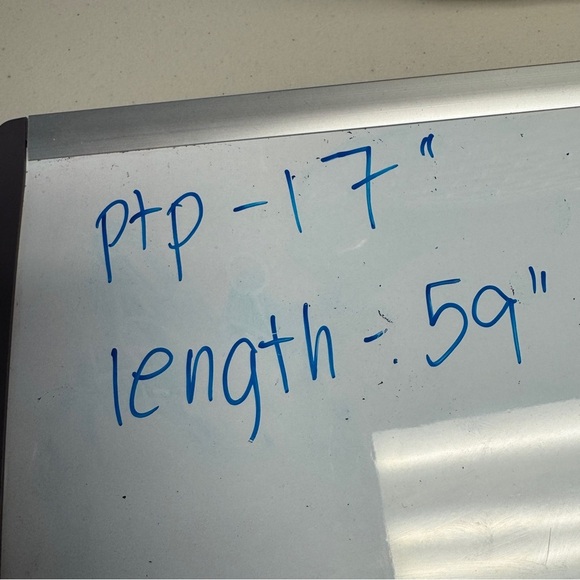 ptp - 17"
length - 59"